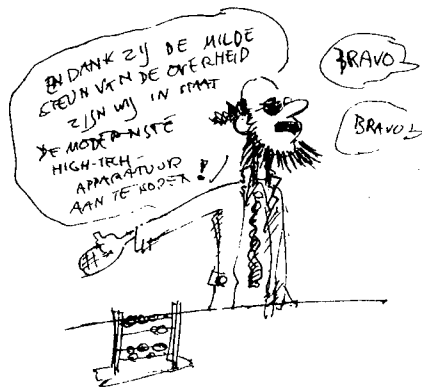 EN DANK ZIJ DE MILDE
STEUN VAN DE OVERHEID
ZIJN WIJ IN STAAT
DE MODERNSTE
HIGH-TECH-
APPARATUUR
AAN TE KOPEN!
BRAVO
BRAVO